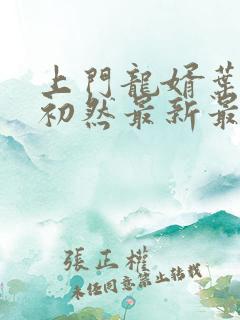 上門龍婿葉
初然最新最
張正權
未經同意禁止轉載